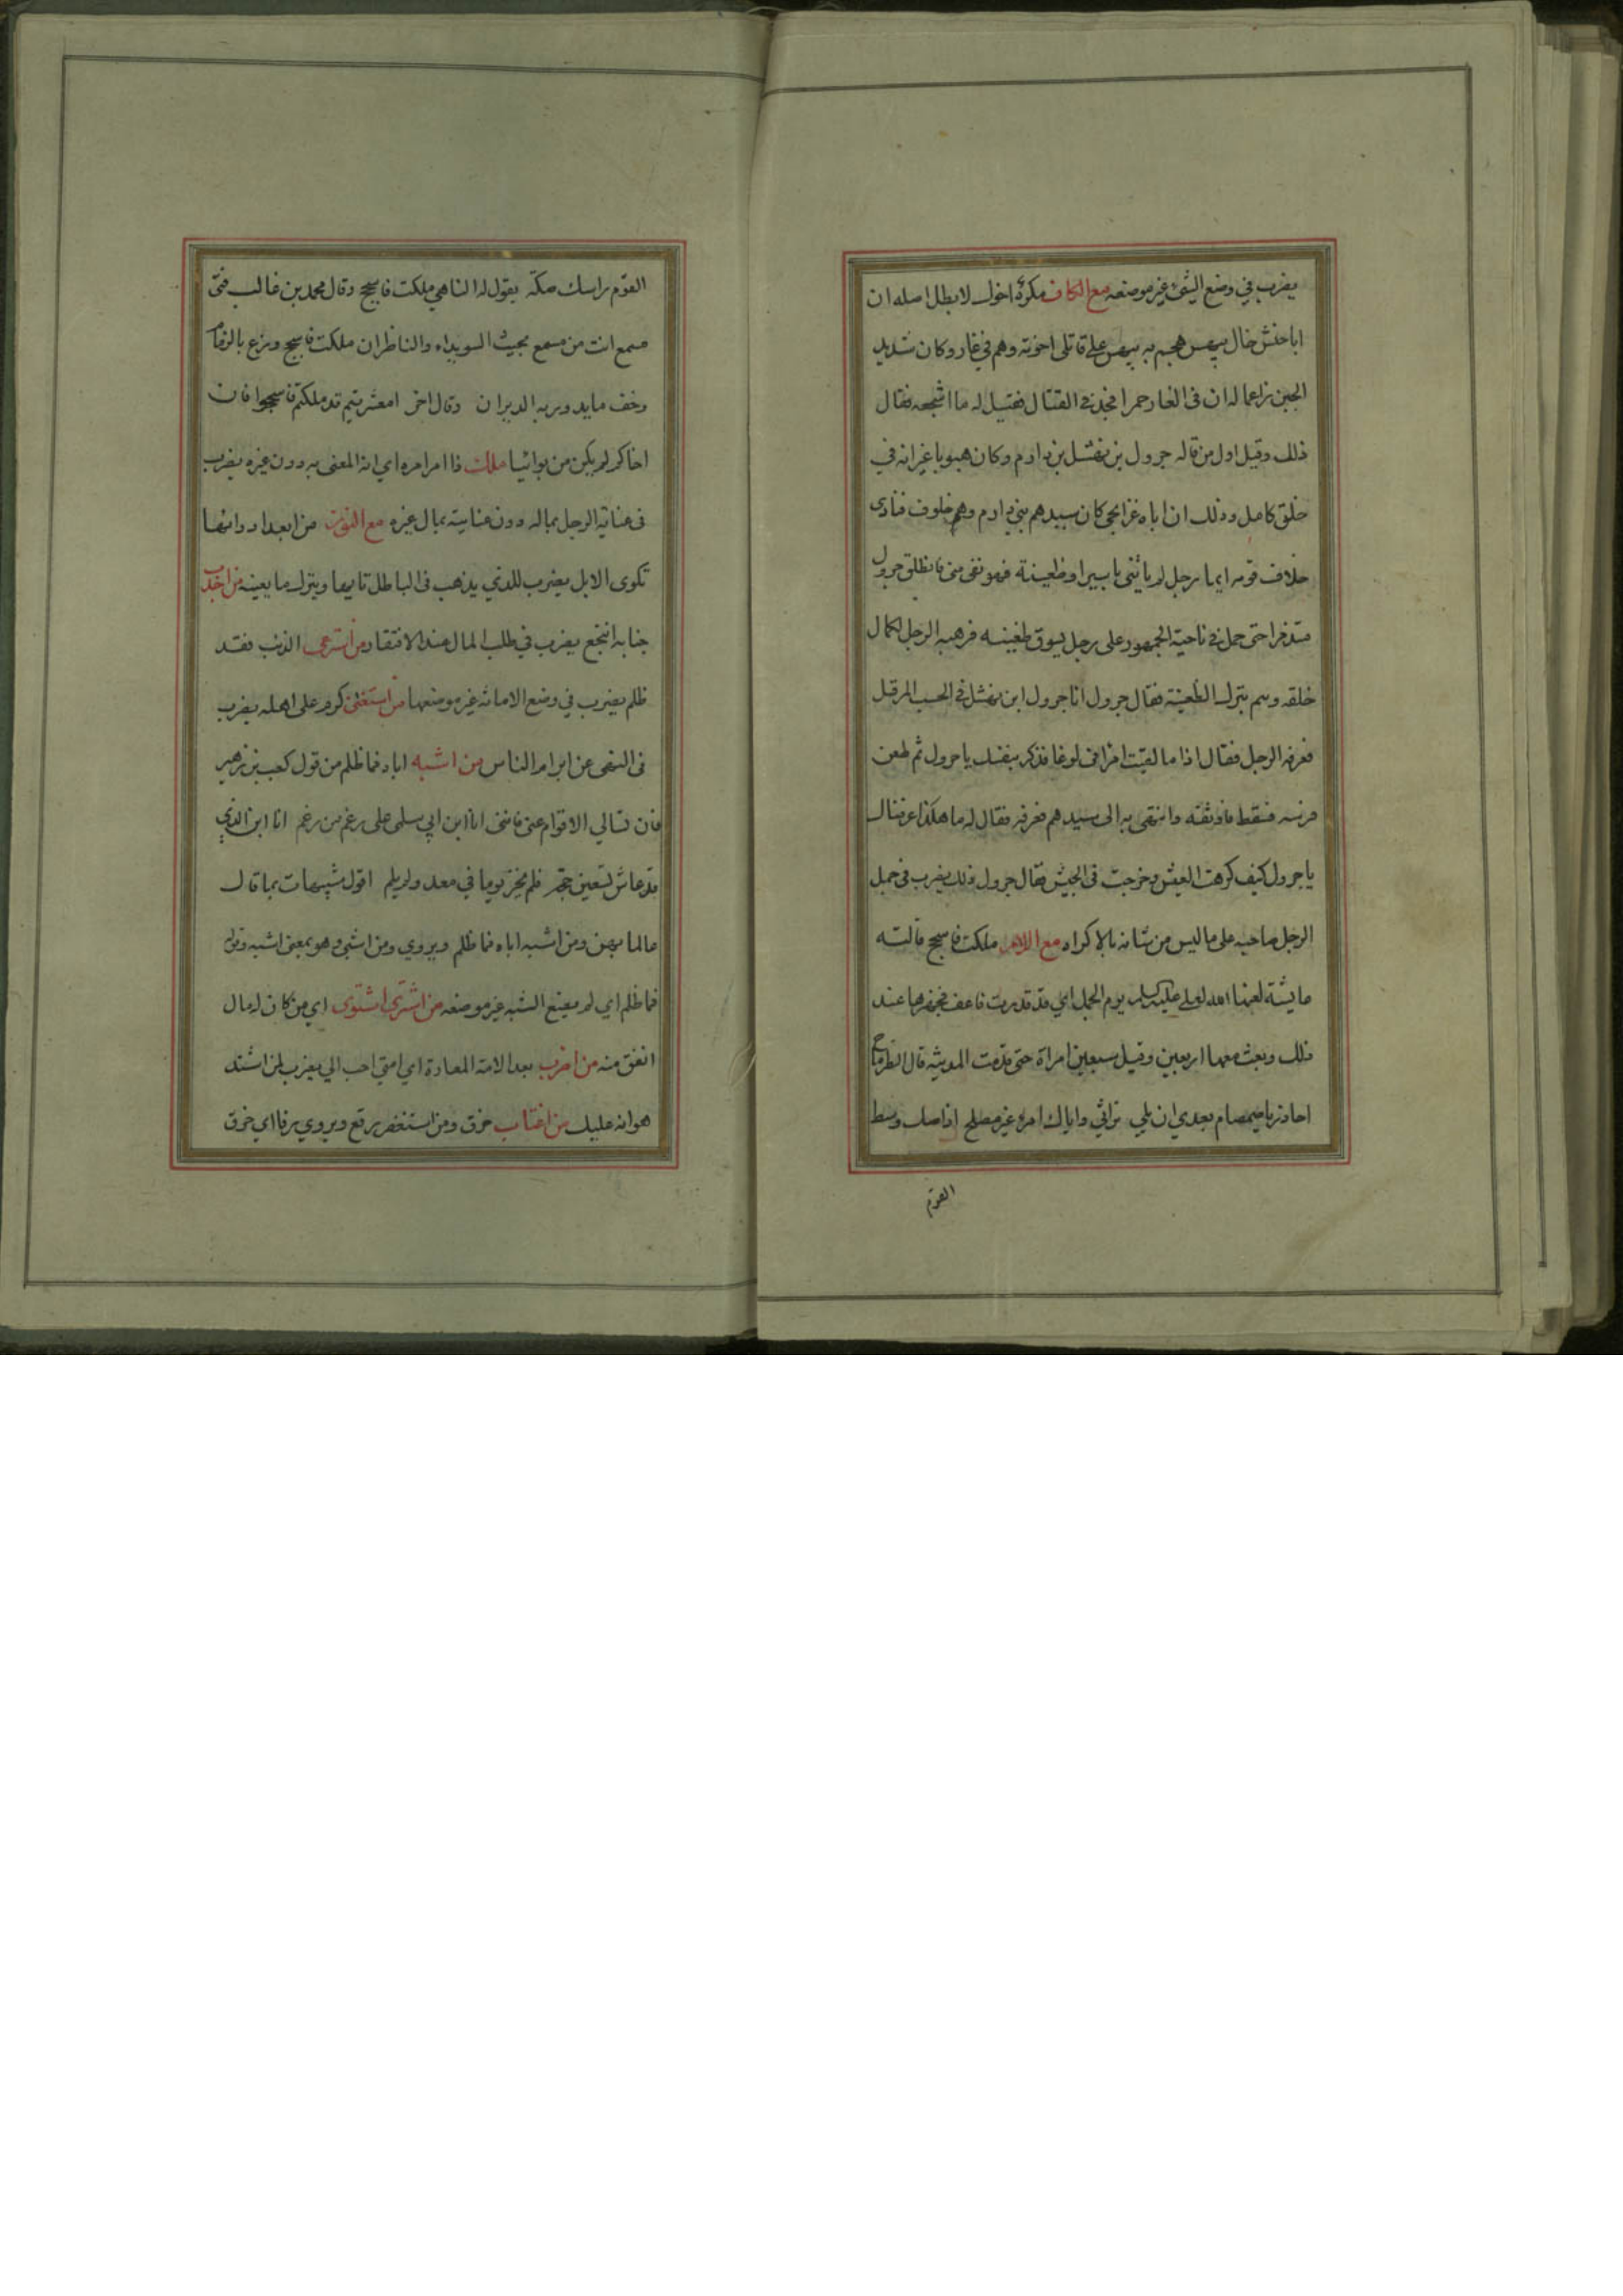 يضرب في وضع الشئ غير موضعه مع الكاف مكره اخوك لا بطل اصله ان
ابا حنش خال بيهس هجم به بيهس على قاتلي اخوته وهم في غار وكان شديد
الجبن زاعما له ان في الغار حمرا فجد في القتال فقيل له ما اشجعه فقال
ذلك وقيل اول من قاله جرول بن نهشل بن دارم وكان هيوبا غير انه في
خلق كامل وذلك ان اباه غزا بحي كان سيدهم بني دارم وهم خلوف فنادى
خلاف قومه ايما رجل لم ياتني باسير او ظعينة فهو نفي مني فانطلق جرول
حتى حمل في ناحية الجمهور على رجل يسوق ظعينه فرهبه الرجل لكمال
خلقه وهم بترك الظعينة فقال جرول انا جرول ابن نهشل في الحسب المرفل
فعرفه الرجل فقال اذا ما لقيت امرا في لوغا فذكر بنفسك يا جرول ثم طعن
فرسه فسقط فاوثقه وانتهى به الى سيدهم فعرفه فقال له ما هكذا عرفناك
يا جرول كيف كرهت العيش وخرجت في الجيش فقال جرول ذلك يضرب في حمل
الرجل صاحبه على ما ليس من شانه بالاكراه مع اللام ملكت فاسجح قالته
عايشة لعلي عليه السلام يوم الجمل اي قد قدرت فاعف فجهزها عند
ذلك وبعث معها اربعين وقيل سبعين امراة حتى قدمت المدينة قال الطرماح
احاذر يا صمصام بعدي ان يلي تراثي واياك امره غير مصلح اذا صك وسط
القوم
القوم راسك صكة يقول له الناهي ملكت فاسجح وقال محمد بن غالب فتى
مسمع انت من مسمع بحيث السويداء والناظران ملكت فاسجح وزع بالزما
وخف ما يدور به الديران وقال اخر امعشر تيم قد ملكتم فاسجحوا فان
اخاكم لم يكن من بوائيا ملك ذا امر امره اي انه المعنى به دون غيره يضرب
في عناية الرجل بماله دون عنايته بمال غيره مع النون من ابعد ادوائها
تكوى الابل يضرب للذي يذهب في الباطل تايها ويترك ما يعينه من اجدب
جنابه انتجع يضرب في طلب المال عند الافتقار من استرعى الذئب فقد
ظلم يضرب في وضع الامانة غير موضعها من استغنى كرم على اهله يضرب
في النهي عن ابرام الناس من اشبه اباه فما ظلم من قول كعب بن زهير
فان تسالي الاقوام عني فانني انا ابن ابي سلمى على رغم من رغم انا ابن الذي
قد عاش تسعين حجة فلم يخز يوما في معد ولم يلم اقول شبيهات بما قال
عالما بهن ومن اشبه اباه فما ظلم ويروى ومن اشبى وهو بمعنى اشبه وقوله
فما ظلم اي لم يضع الشبه غير موضعه من اشترى اشتوى اي من كان له مال
انفق منه من اضرب بعد الامة المعادة اي امتي احب الي يضرب لمن اشتد
هوانه عليك من اغتاب خرق ومن استغفر رقع ويروى رفا اي خرق